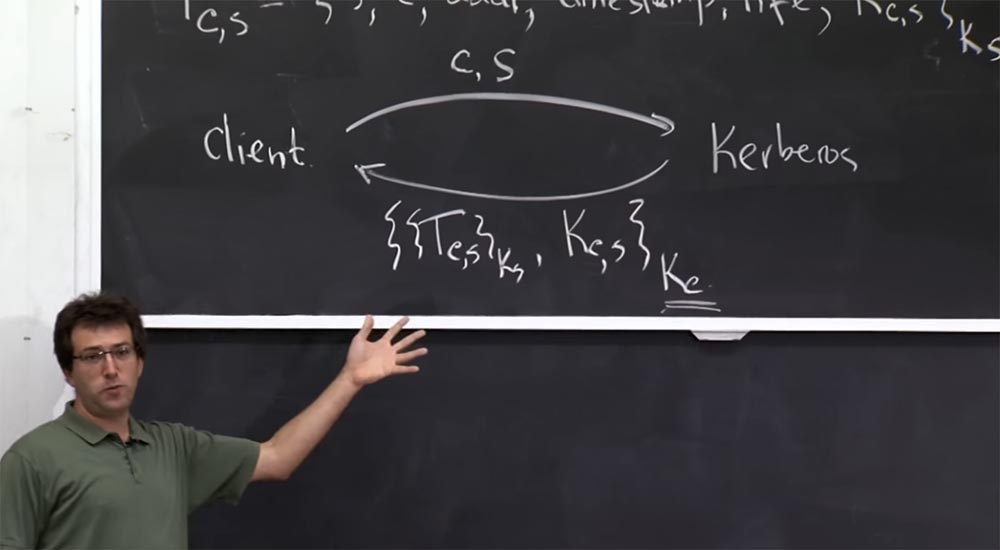 T_{c,s} = {s, c, addr, timestamp, life, K_{c,s}}_{K_s}
c, s
Client. Kerberos
{{T_{c,s}}_{K_s}, K_{c,s}}_{K_c}